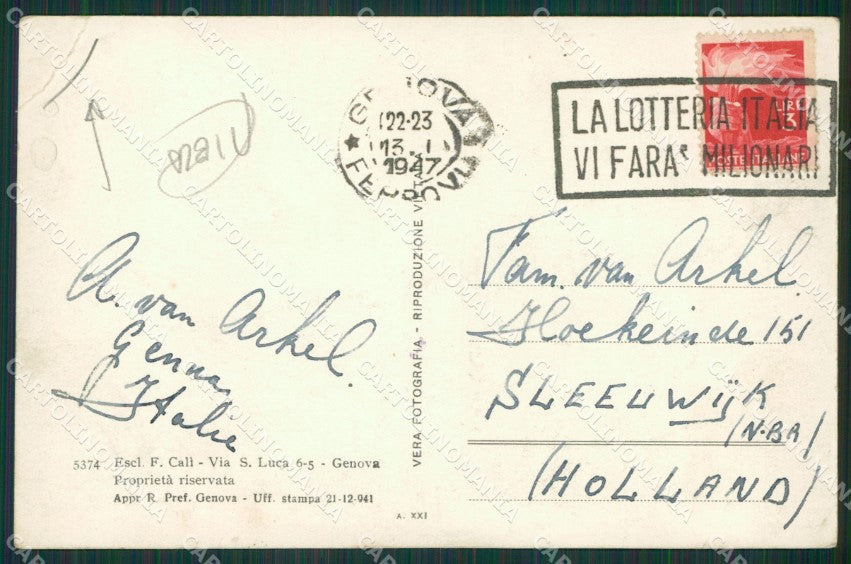 GENOVA
22-23
13. 1
1947
FERROVIA
LA LOTTERIA ITALIA
VI FARA' MILIONARI
LIRE 3
POSTE ITALIANE
A. van Arkel.
Genua
Italie
Fam. van Arkel.
Hoekeinde 151
SLEEUWIJK
(N.BR)
(HOLLAND)
VERA FOTOGRAFIA - RIPRODUZIONE VIETATA
5374 Escl. F. Calì - Via S. Luca 6-5 - Genova
Proprietà riservata
Appr. R. Pref. Genova - Uff. stampa 21-12-941
A. XXI
CARTOLINOMANIA